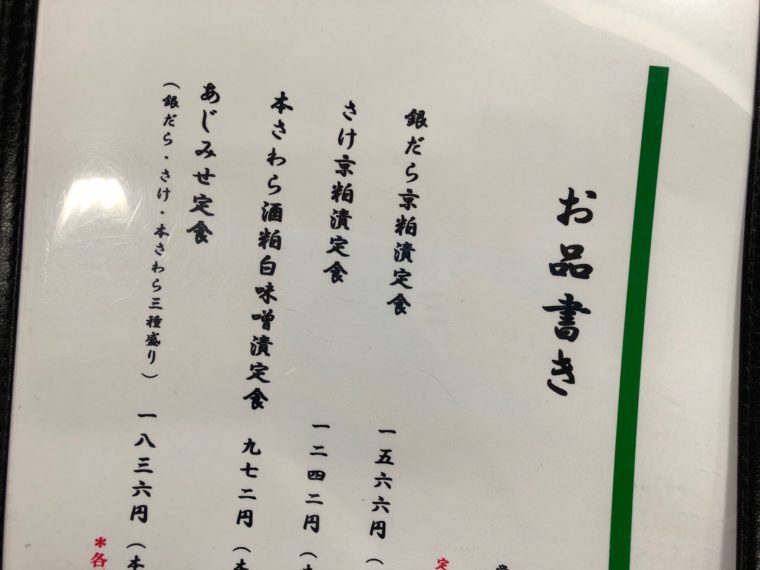 お品書き
銀だら京粕漬定食 一五六六円（
さけ京粕漬定食 一二四二円（本
本さわら酒粕白味噌漬定食 九七二円（本
あじみせ定食
（銀だら・さけ・本さわら三種盛り） 一八三六円（本
定
＊各